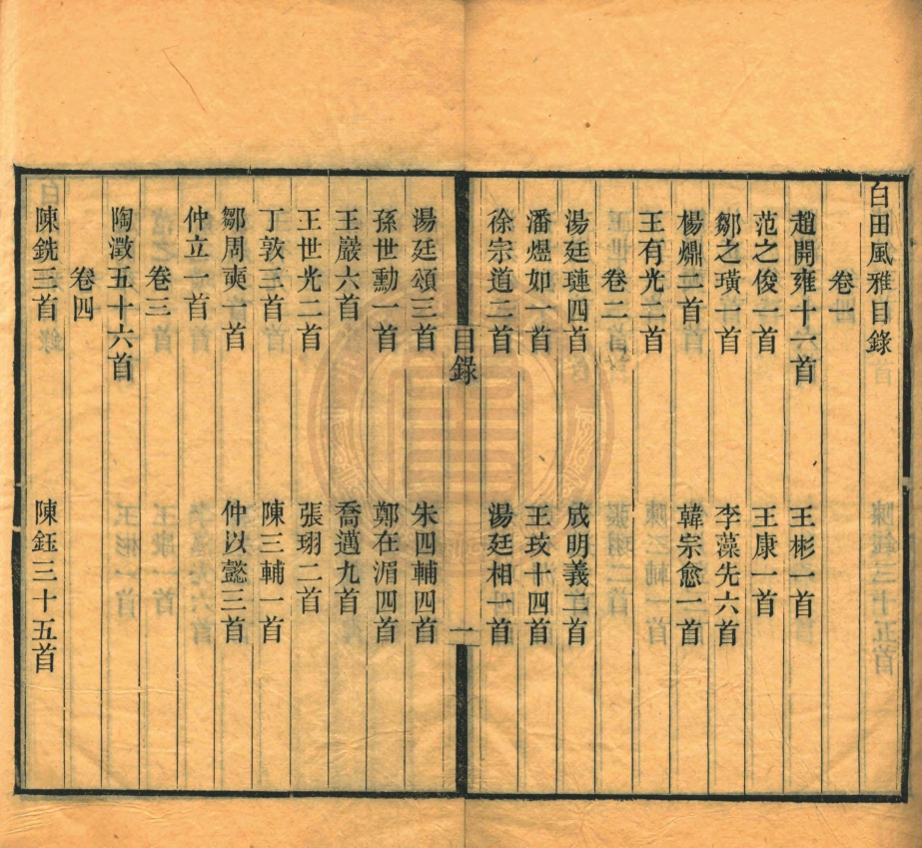 白田風雅目錄
卷一
趙開雍十六首 王彬一首
范之俊一首 王康一首
鄒之璜一首 李藻先六首
楊鼑二首 韓宗愈一首
王有光二首
卷二
湯廷璉四首 成明義二首
潘煜如一首 王玟十四首
徐宗道二首 湯廷相一首
目錄 一
湯廷頌三首 朱四輔四首
孫世勳一首 鄭在湄四首
王巖六首 喬邁九首
王世光二首 張珝二首
丁敦三首 陳三輔一首
鄒周奭一首 仲以懿三首
仲立一首
卷三
陶澂五十六首
卷四
陳銑三首 陳鈺三十五首